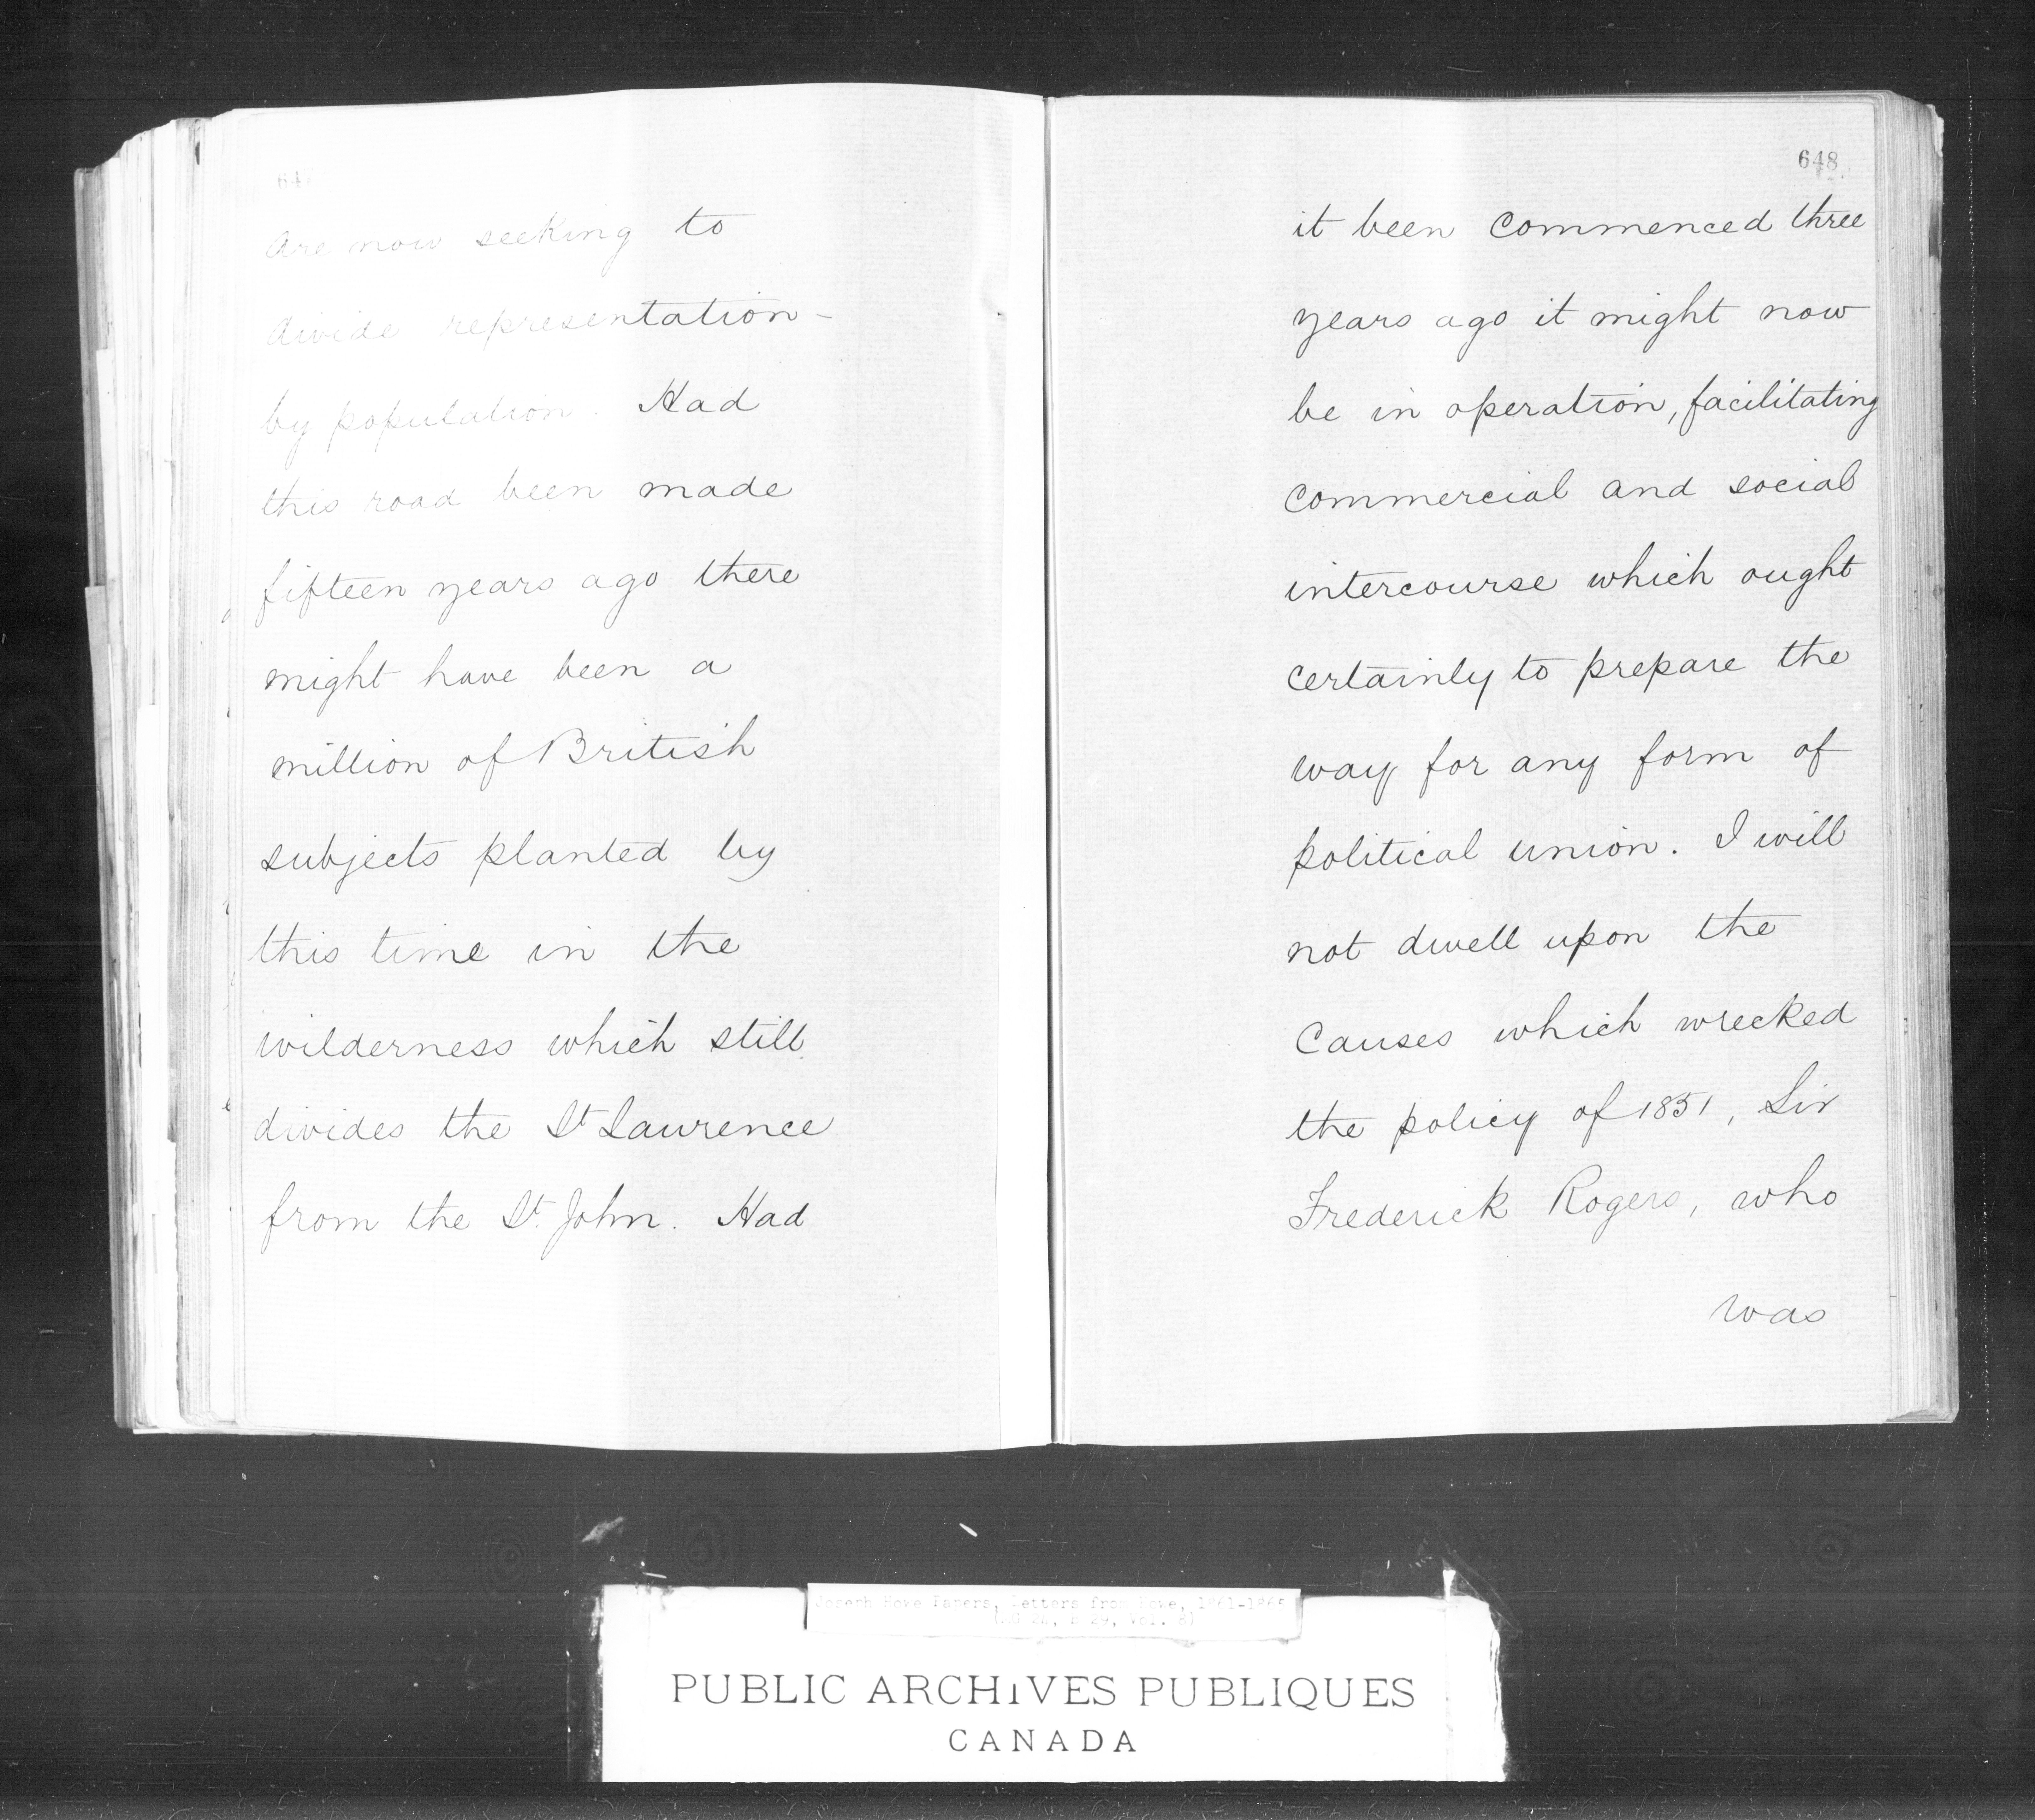 are now seeking to
divide representation-
by population. Had
this road been made
fifteen years ago there
might have been a
million of British
subjects planted by
this time in the
wilderness which still
divides the St Lawrence
from the St. John. Had
648
it been commenced three
years ago it might now
be in operation, facilitating
commercial and social
intercourse which ought
certainly to prepare the
way for any form of
political union. I will
not dwell upon the
causes which wrecked
the policy of 1851, Sir
Frederick Rogers, who
was
Joseph Howe Papers, Letters from Howe,
PUBLIC ARCHIVES PUBLIQUES
CANADA